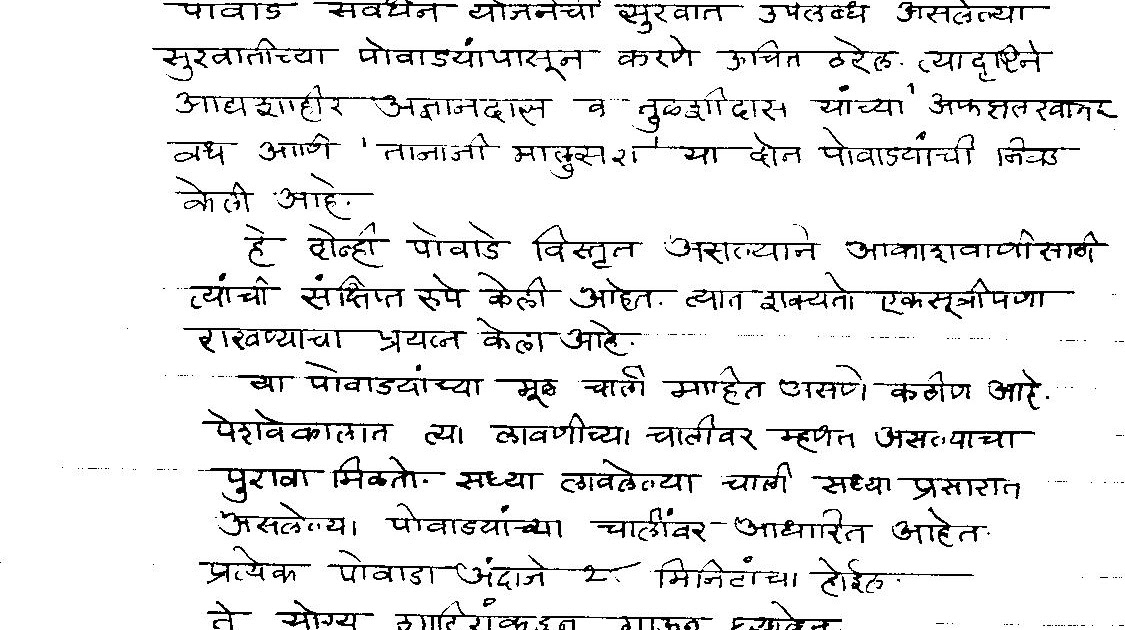 पोवाडे संवर्धन योजनेची सुरवात उपलब्ध असलेल्या
सुरवातीच्या पोवाडयांपासून करणे उचित ठरेल. त्यादृष्टिने
आद्यशाहीर अज्ञानदास व तुळशीदास यांच्या 'अफझलखान
वध आणि 'तानाजी मालुसरा' या दोन पोवाडयांची निवड
केली आहे.
हे दोन्ही पोवाडे विस्तृत असल्याने आकाशवाणीसाठी
त्यांची संक्षिप्त रुपे केली आहेत. त्यात शक्यतो एकसूत्रीपणा
राखण्याचा प्रयत्न केला आहे.
या पोवाडयांच्या मूळ चाली माहित असणे कठीण आहे.
पेशवेकालात त्या लावणीच्या चालीवर म्हणत असल्याचा
पुरावा मिळतो. सध्या लावलेल्या चाली सध्या प्रसारात
असलेल्या पोवाडयांच्या चालींवर आधारित आहेत.
प्रत्येक पोवाडा अंदाजे मिनिटांचा होईल.
ते योग्य शाहिरांकडून गाऊन घ्यावेत